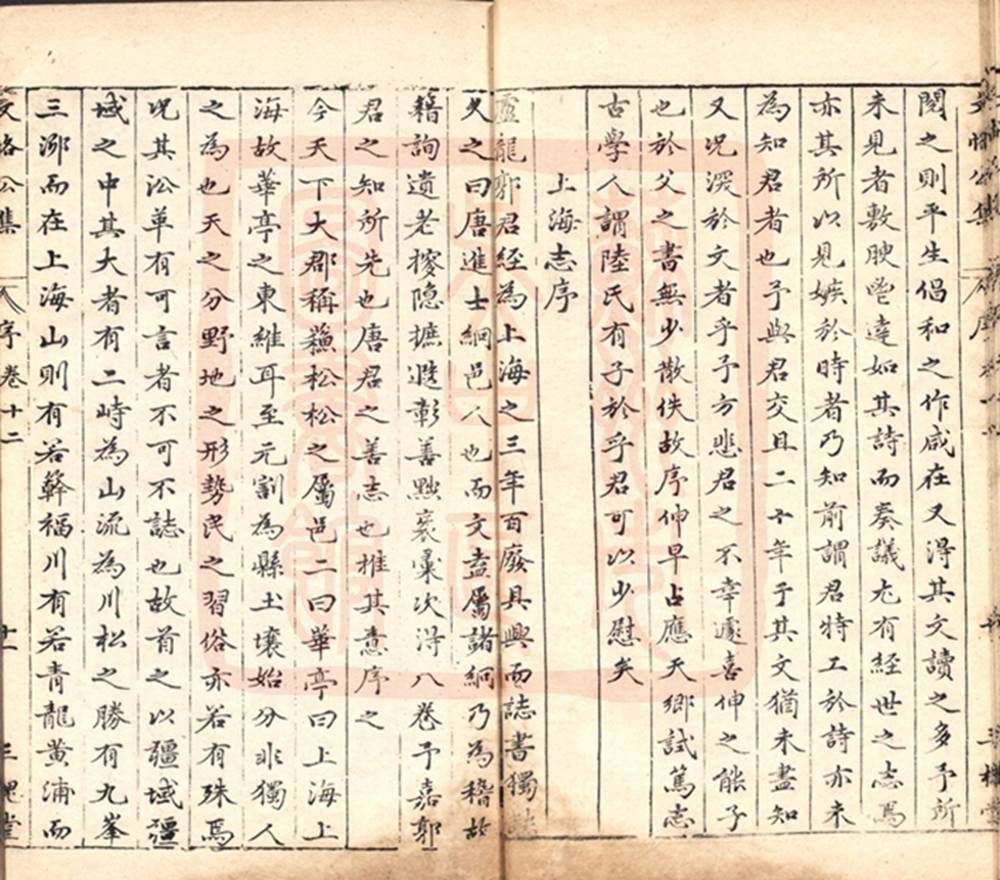 閱之則平生倡和之作咸在又淂其文讀之多予所
未見者敷腴豐達如其詩而奏議尤有経世之志焉
亦其所以見嫉於時者乃知前謂君特工於詩亦未
為知君者也予與君交且二十年于其文猶未盡知
又况深於文者乎予方悲君之不幸遽喜伸之能子
也於父之書無少散佚故序伸早占應天鄉試篤志
古學人謂陸氏有子於乎君可以少慰矣
上海志序
盧龍郭君経為上海之三年百廢具興而誌書獨
久之曰唐進士綱邑人也而文盍屬諸綱乃為稽故
籍詢遺老搜隐摭遐彰善黜袤彙次淂八卷予嘉郭
君之知所先也唐君之善志也推其意序之
今天下大郡稱蘓松松之屬邑二曰華亭曰上海上
海故華亭之東維耳至元割為縣土壤始分非獨人
之為也天之分野地之形勢民之習俗亦若有殊焉
况其㳂革有可言者不可不誌也故首之以疆域疆
域之中其大者有二峙為山流為川松之勝有九峯
三泖而在上海山則有若簳福川有若青龍黄浦而
文恪公集 序 卷十二 十一 三槐堂